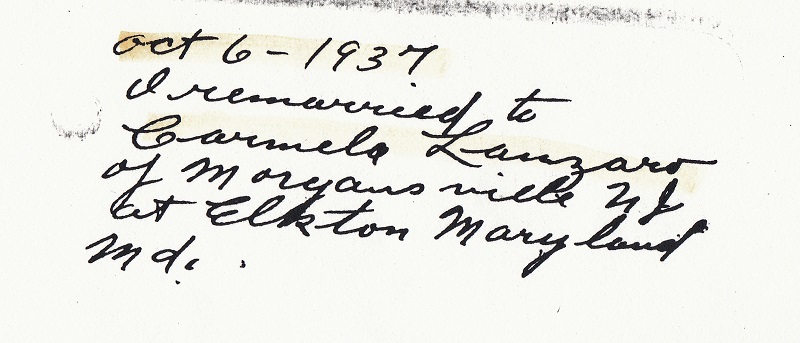 oct 6 - 1937
I remarried to
Carmela Lanzaro
of Morgansville NJ
at Elkton Maryland
Md.